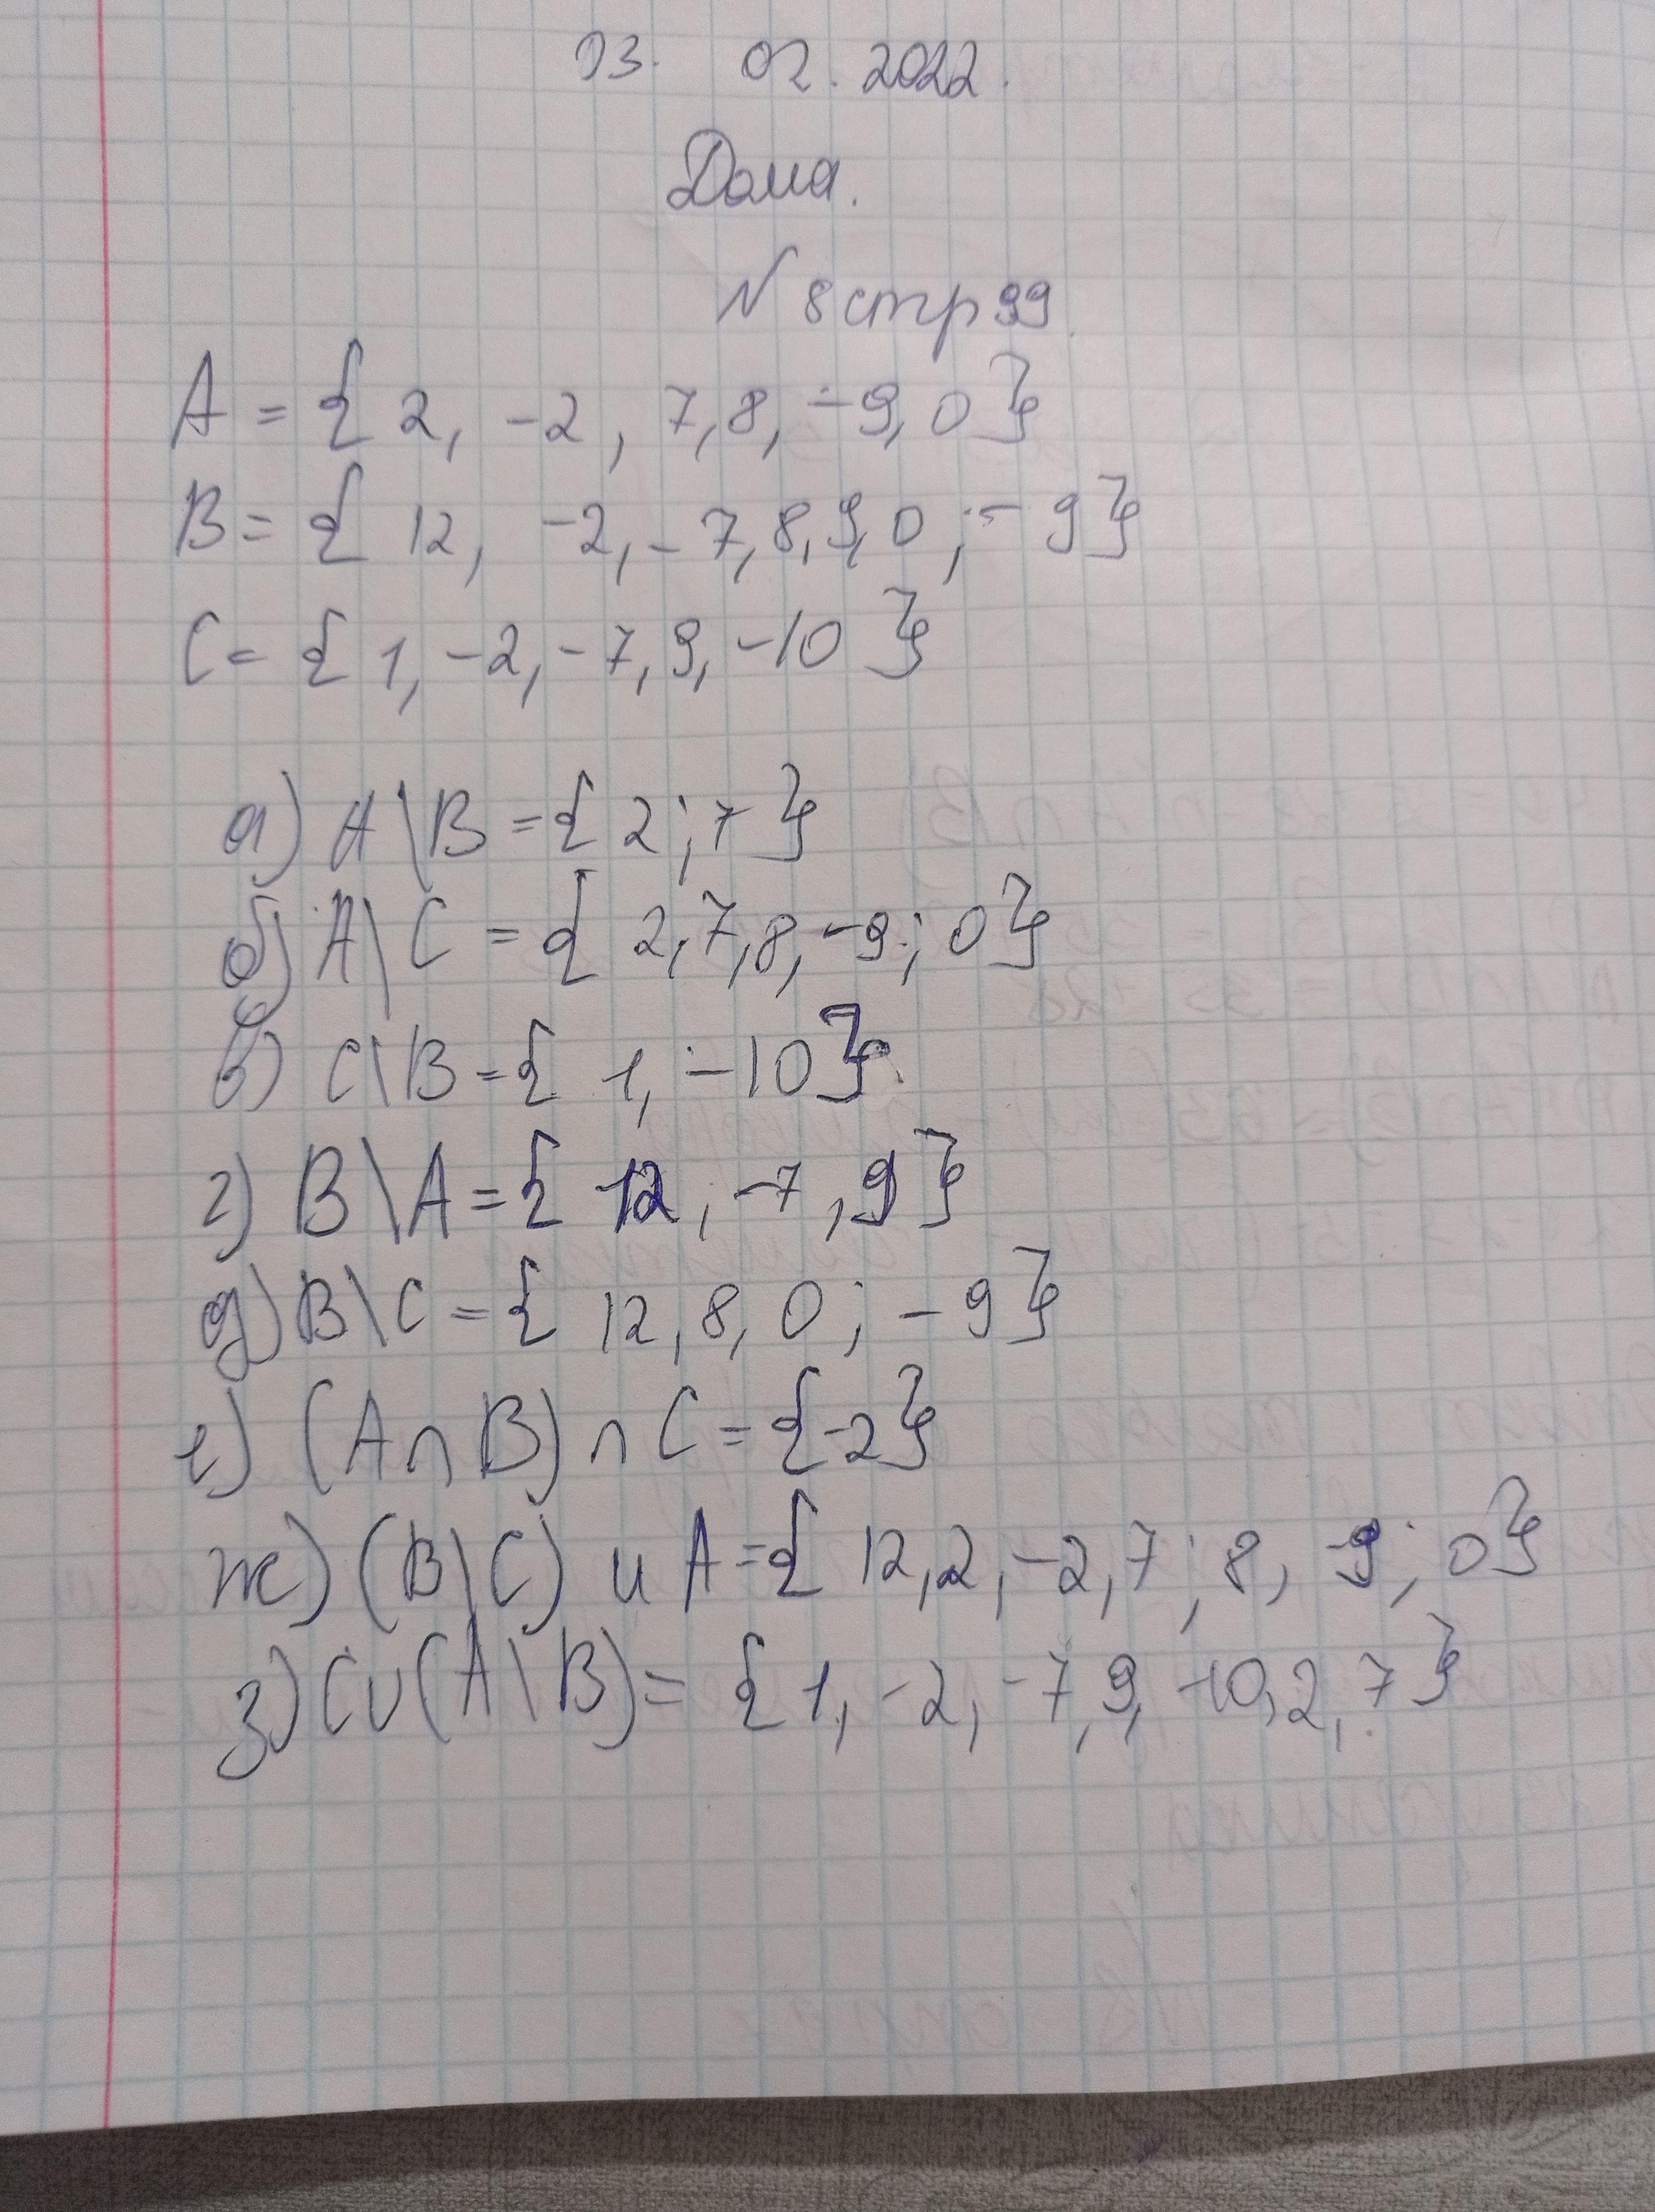 03. 02. 2022.
Дома.
N 8 стр 99.
A = { 2, -2, 7, 8, -9, 0 }
B = { 12, -2, -7, 8, 9, 0 ; -9 }
C = { 1, -2, -7, 9, -10 }
а) A \ B = { 2 ; 7 }
б) A \ C = { 2, 7, 8, -9 ; 0 }
в) C \ B = { 1, -10 }
г) B \ A = { 12, -7, 9 }
д) B \ C = { 12, 8, 0 ; -9 }
е) (A ∩ B) ∩ C = { -2 }
ж) (B \ C) ∪ A = { 12, 2, -2, 7 ; 8, -9 ; 0 }
з) C ∪ (A \ B) = { 1, -2, -7, 9, -10, 2, 7 }